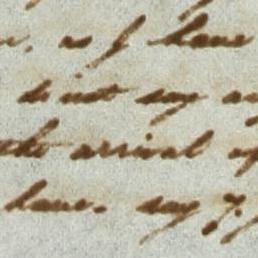 as I have
do not say an
the arrival of
have. say 7.